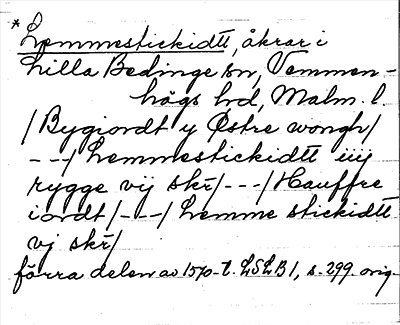 *Lemmestickidtt, åkrar i
Lilla Bedinge sn, Vemmen-
högs hd, Malm. l.
/Bygiordt y Østre wongh/
---/Lemmestickidtt iiij
rygge vij skr/---/Hauffre
iordt/---/Lemme stickidtt
vj skr/
förra delen av 1570-t. LSLB 1, s. 299. orig.